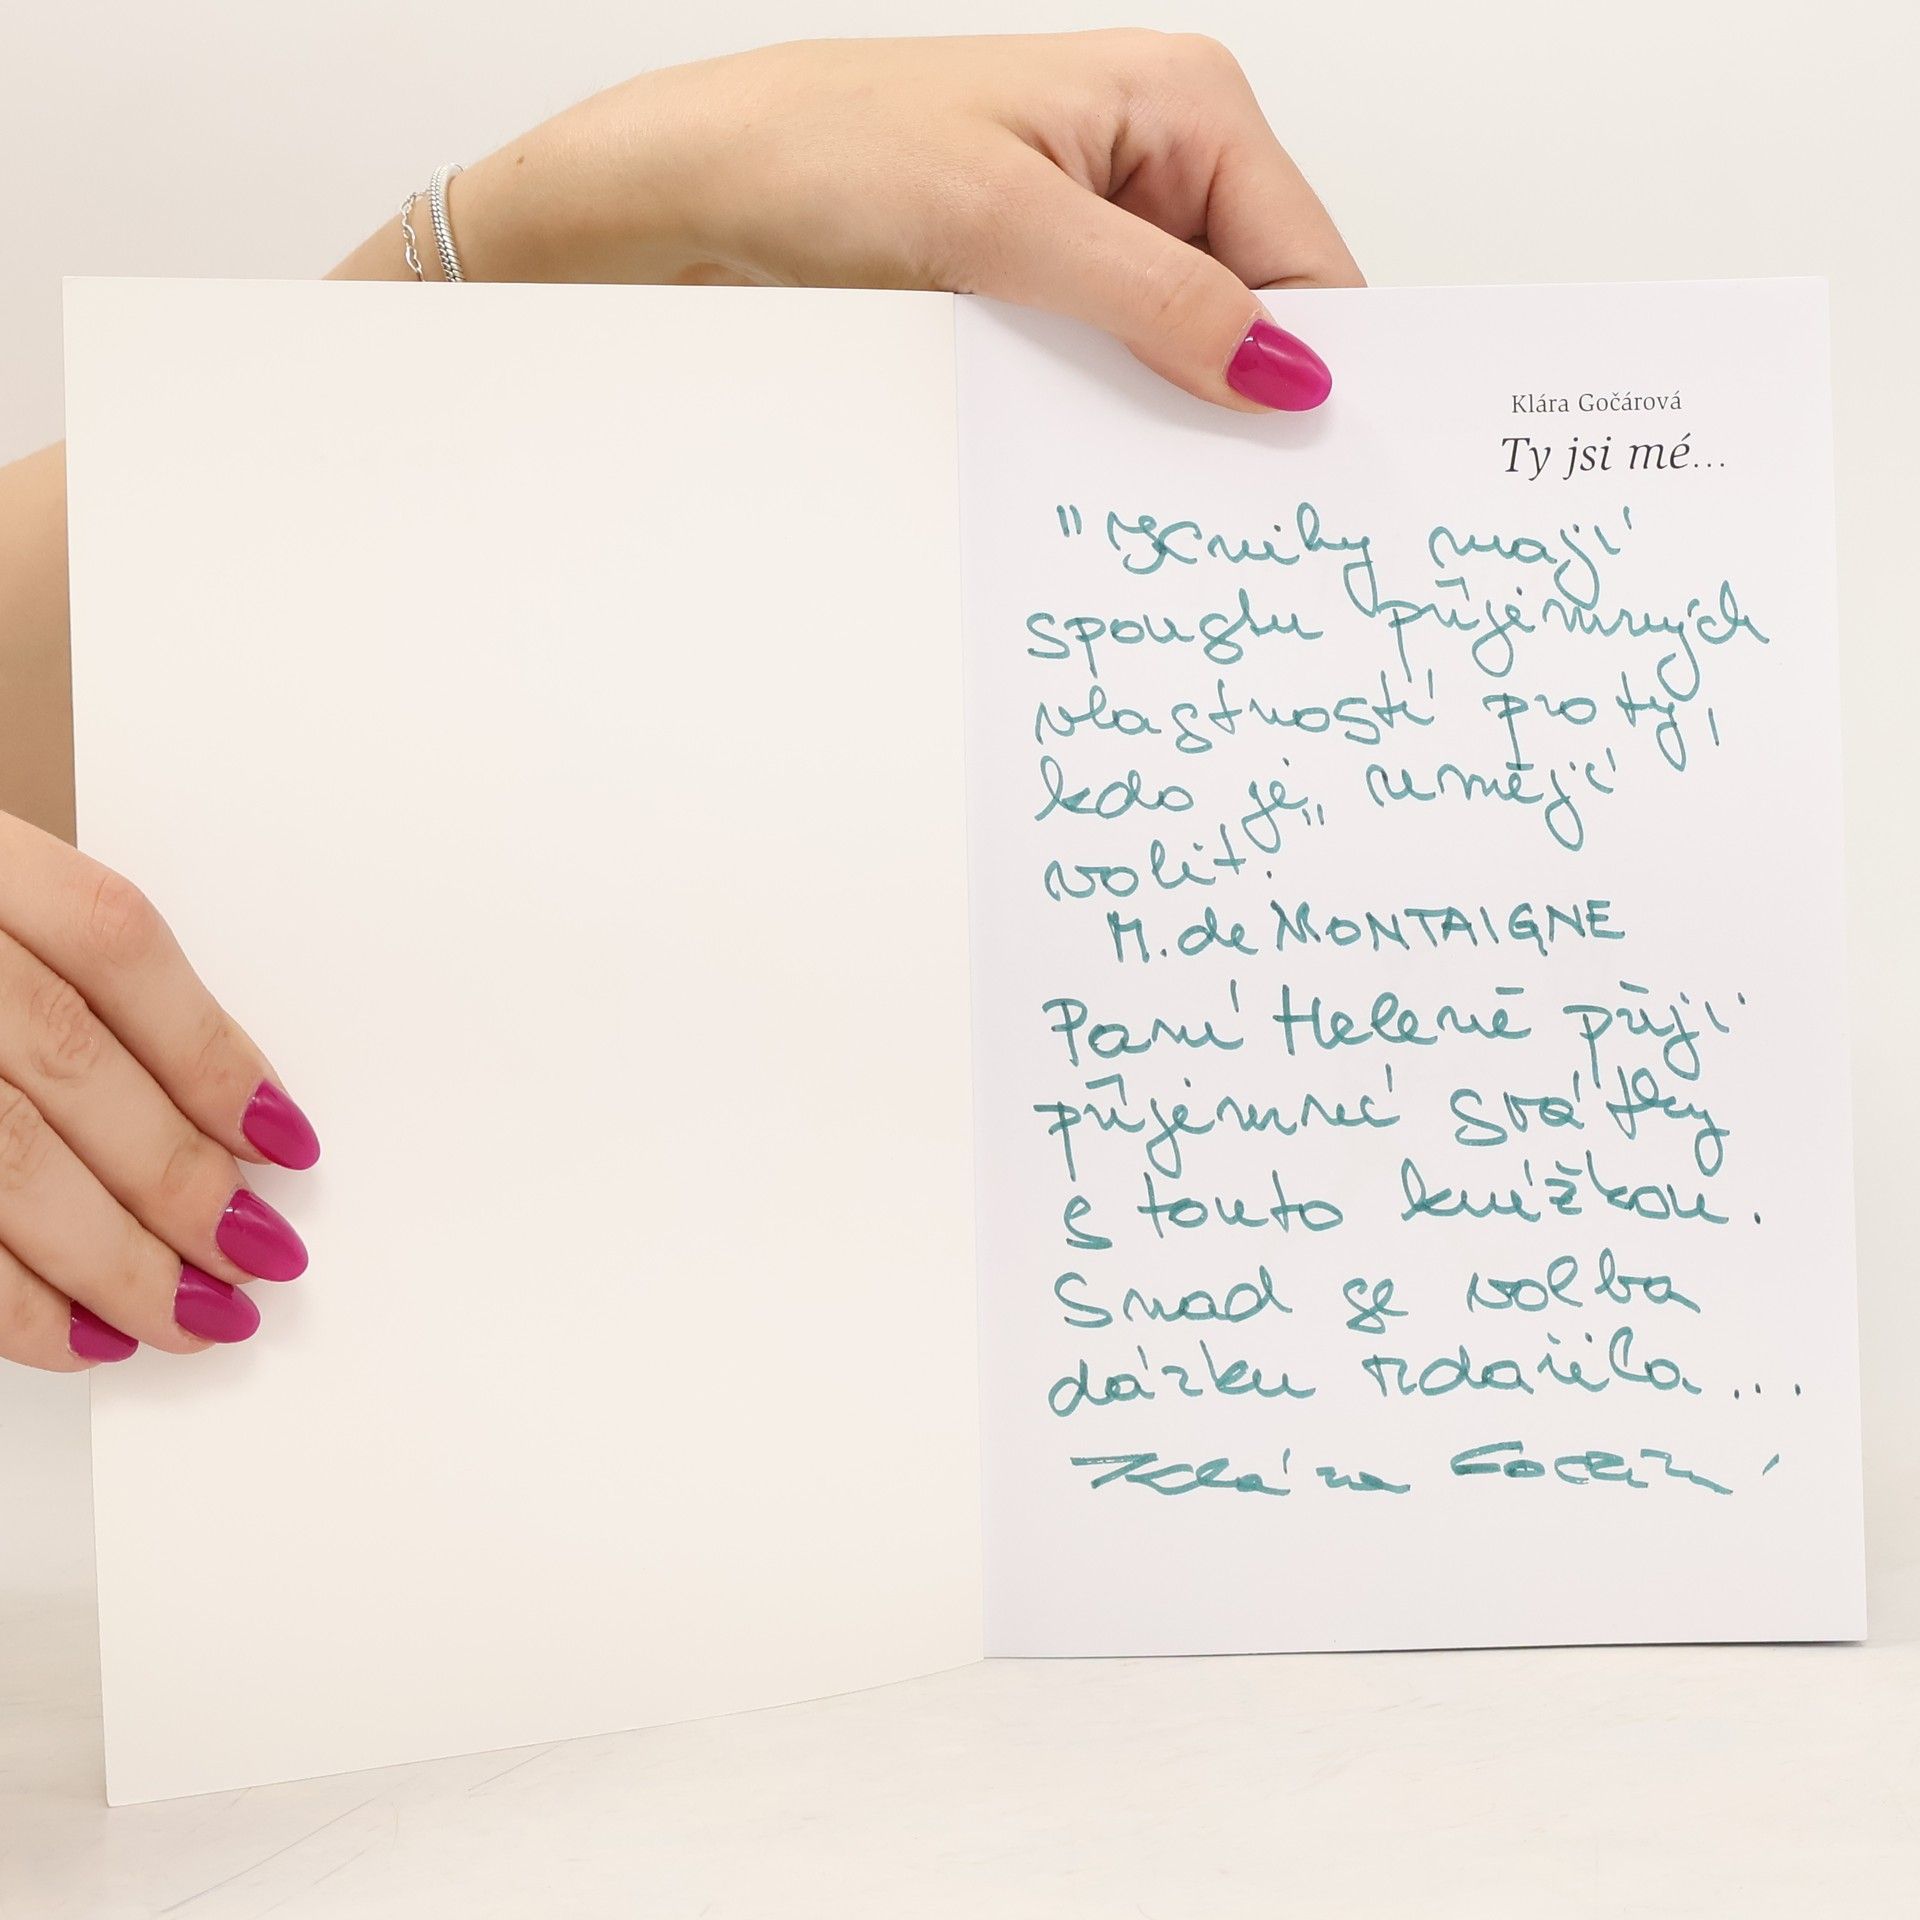 Klára Gočárová
Ty jsi mé...
"Knihy mají
spoustu příjemných
vlastností pro ty,
kdo je umějí
volit."
M. de MONTAIGNE
Paní Heleně přeji
příjemné svátky
s touto knížkou.
Snad se volba
dárku zdařila...
Klára Gočárová